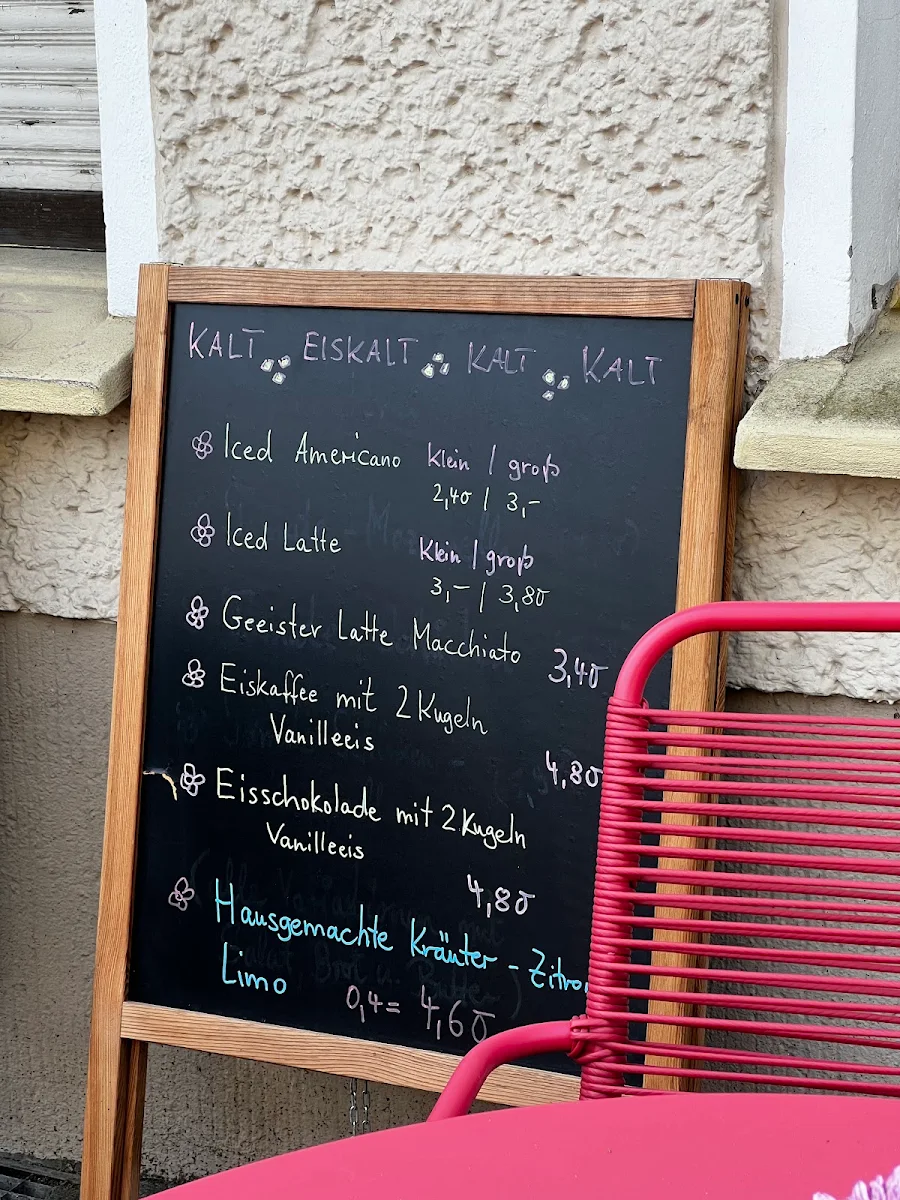 KALT EISKALT KALT KALT
Iced Americano Klein / groß
2,40 / 3,-
Iced Latte Klein / groß
3,- / 3,80
Geeister Latte Macchiato 3,40
Eiskaffee mit 2 Kugeln
Vanilleeis
4,80
Eisschokolade mit 2 Kugeln
Vanilleeis
4,80
Hausgemachte Kräuter - Zitro
Limo 0,4 = 4,60